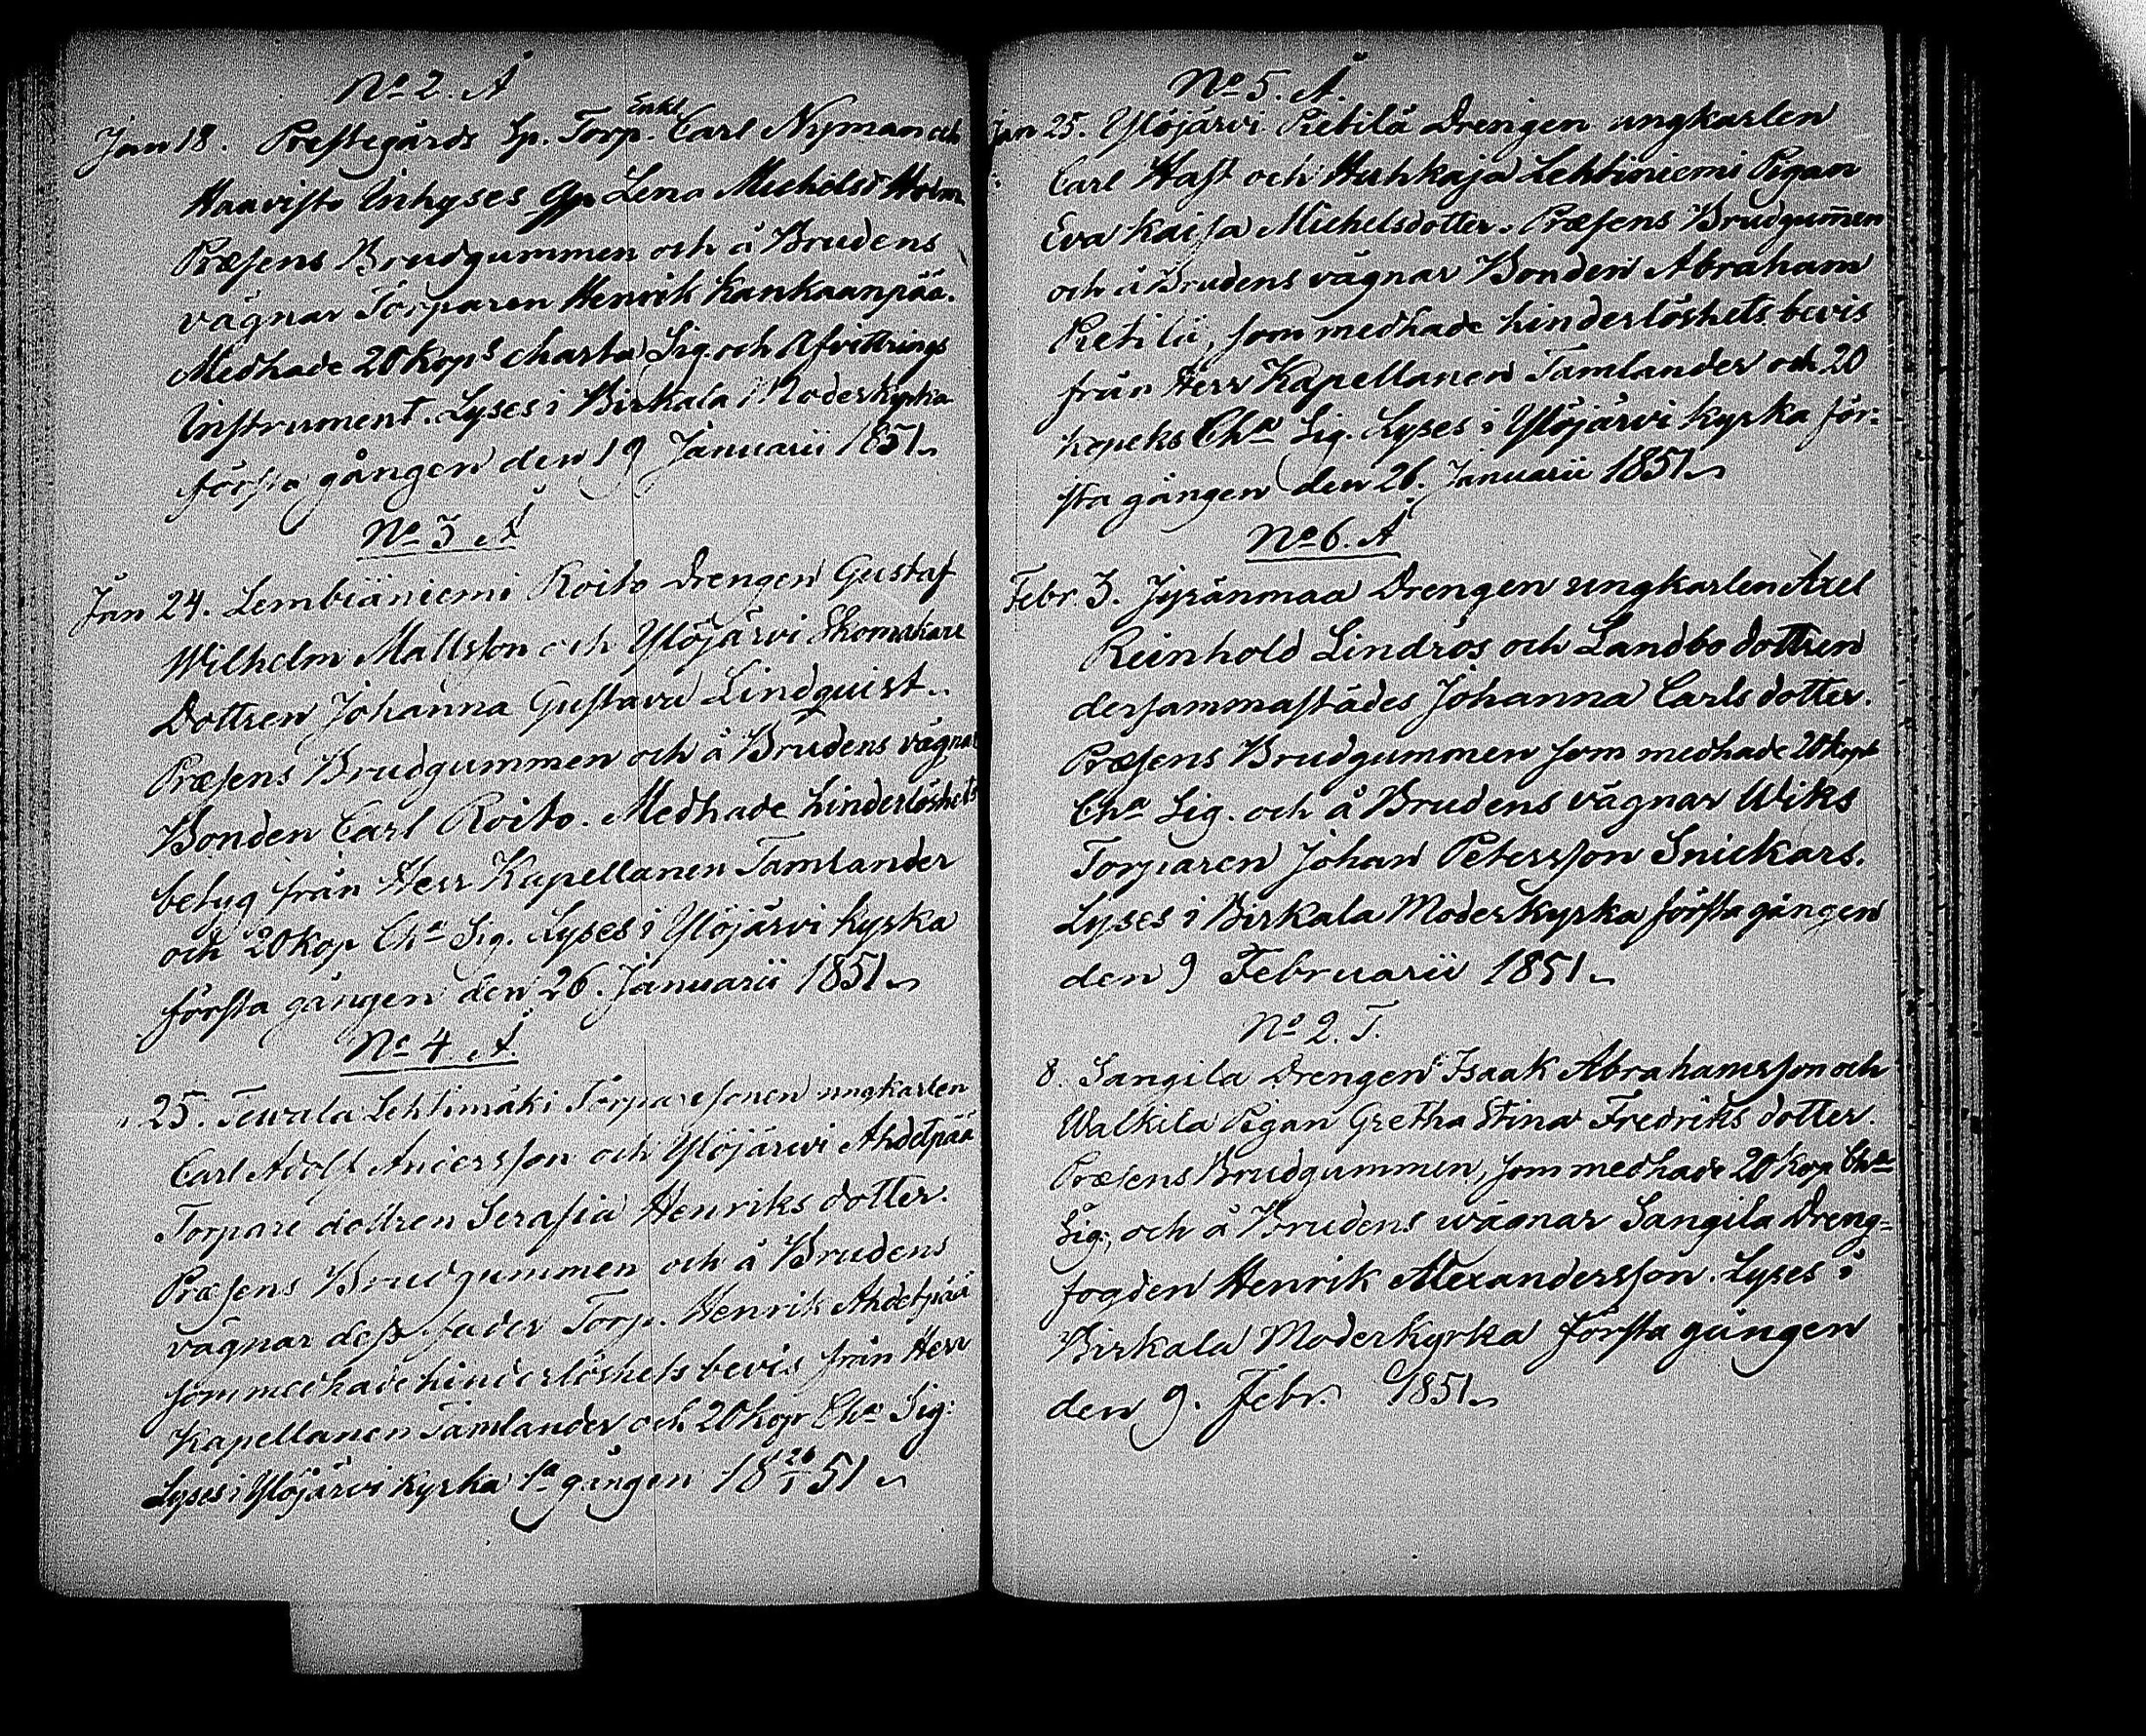 No 2. Å
Enkl
Jan 18. Prestegårds Sp. Torp. Carl Nyman och
Haavisto Inhyses Lena Michelsd Holm.
Præsens Brudgummen och å Brudens
vägnar Torparen Henrik Kankaanpää.
Medhade 20 Kops Charta Sig. och Afvittrings
Instrument. Lyses i Birkala Moderkyrka
första gången den 19 Januarii 1851.
No 3 Å
Jan 24. Lembiäniemi Roito Drengen Gustaf
Wilhelm Mallstén och Ylöjärvi Skomakare
Dottren Johanna Gustava Lindquist.
Præsens Brudgummen och å Brudens vägnar
Bonden Carl Roito. Medhade hinderlöshets
betyg från Herr Kapellanen Tamlander
och 20 kop Cha Sig. Lyses i Ylöjärvi kyrka
första gången den 26. Januarii 1851.
No 4. Å.
" 25. Tewala Lehtimäki Torparesonen ungkarlen
Carl Adolf Andersson och Ylöjärwi Ahdetpää
Torpare dottren Serafia Henriks dotter.
Præsens Brudgummen och å Brudens
vägnar dess fader Torp. Henrik Ahdetpää
som medhade hinderlöshets bevis från Herr
Kapellanen Tamlander och 20 kop Cha Sig:
Lyses i Ylöjärvi kyrka 1a gången 18 26/1 51.
No 5. Å.
Jan 25. Ylöjärvi Pietilä Drengen ungkarlen
Carl Hast och Huhkaja Lehtiniemi Pigan
Eva Kaisa Michelsdotter. Præsens Brudgummen
och å Brudens vägnar Bonden Abraham
Pietilä, som medhade hinderlöshets bevis
från Herr Kapellanen Tamlander och 20
kopeks Cha Sig. Lyses i Ylöjärvi kyrka för:
sta gången den 26. Januarii 1851.
No 6. Å
Febr. 3. Jyränmaa Drengen ungkarlen Axel
Reinhold Lindros och Landbo dottren
dersammastädes Johanna Carls dotter.
Præsens Brudgummen som medhade 20 kops
Cha Sig. och å Brudens vägnar Wiks
Torparen Johan Petersson Snickars.
Lyses i Birkala Moderkyrka första gången
den 9 Februarii 1851.
No 2. T.
8. Sangila Drengen Isaak Abrahamsson och
Walkila Pigan Gretha Stina Fredriks dotter.
Præsens Brudgummen, som medhade 20 kop Cha
Sig:, och å Brudens wägnar Sangila Dreng=
fogden Henrik Alexandersson. Lyses i
Birkala Moderkyrka första gången
den 9. Febr. 1851.